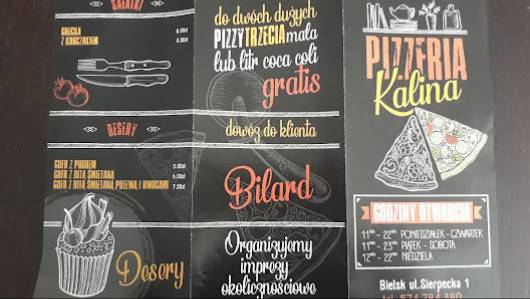 SAŁATKI
GRECKA 6.50zł
Z KURCZAKIEM 6.50zł
DESERY
GOFR Z PUDREM 5.00zł
GOFR Z BITĄ ŚMIETANĄ 6.00zł
GOFR Z BITĄ ŚMIETANĄ POLEWĄ I OWOCAMI 7.50zł
Desery
do dwóch dużych
PIZZY TRZECIA mała
lub litr coca coli
gratis
dowóz do klienta
Bilard
Organizujemy
imprezy
okolicznościowe
PIZZERIA
Kalina
GODZINY OTWARCIA
11⁰⁰ - 22⁰⁰ PONIEDZIAŁEK - CZWARTEK
11⁰⁰ - 23⁰⁰ PIĄTEK - SOBOTA
12⁰⁰ - 22⁰⁰ NIEDZIELA
Bielsk ul.Sierpecka 1
tel. 574 794 380